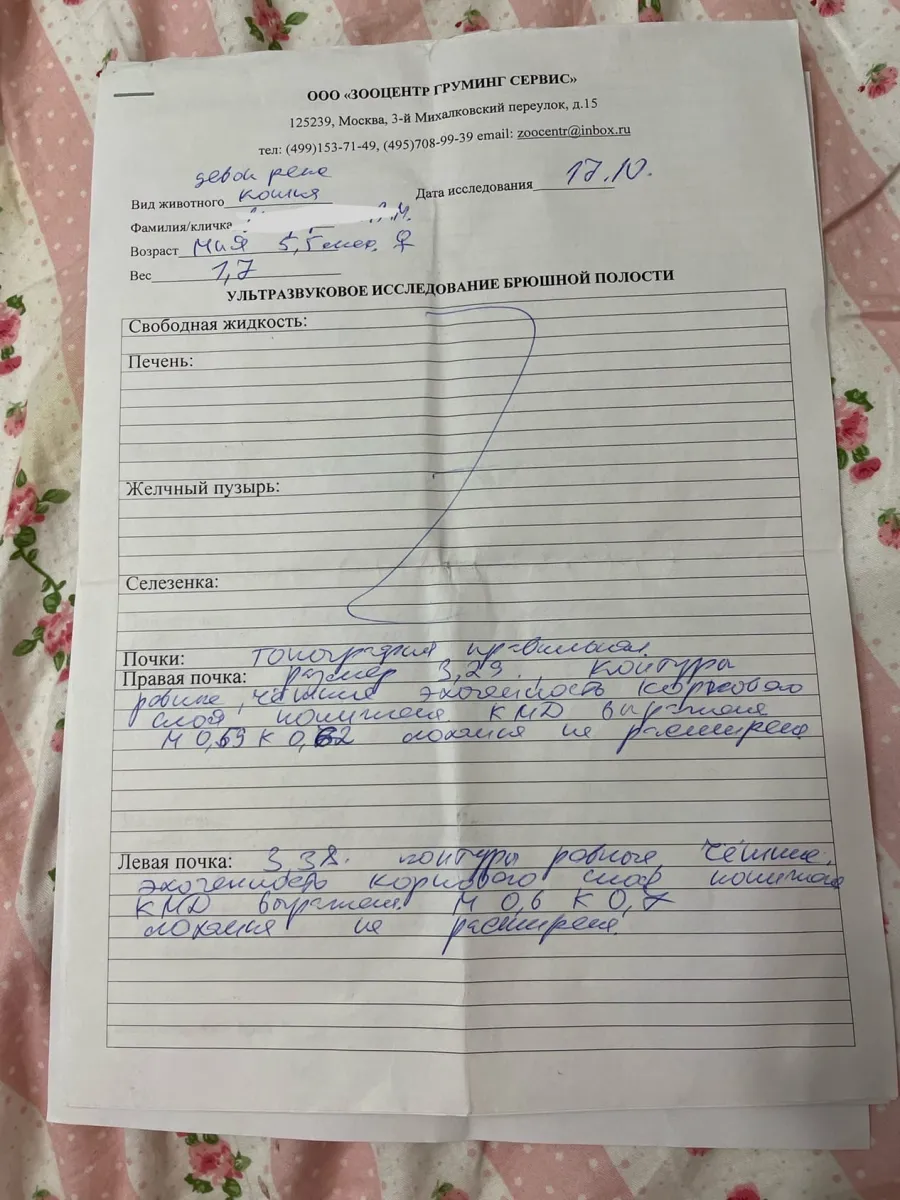 ООО «ЗООЦЕНТР ГРУМИНГ СЕРВИС»
125239, Москва, 3-й Михалковский переулок, д.15
тел: (499)153-71-49, (495)708-99-39 email: zoocentr@inbox.ru
девон рекс
Вид животного кошка Дата исследования 17.10.
Фамилия/кличка
Возраст Мия 5,5 мес. ♀
Вес 1,7
УЛЬТРАЗВУКОВОЕ ИССЛЕДОВАНИЕ БРЮШНОЙ ПОЛОСТИ
Свободная жидкость:
Печень:
Желчный пузырь:
Селезенка:
Почки: топография правильная.
Правая почка: размер 3,29. контуры
ровные, четкие эхогенность коркового
слоя КМД выражена
М 0,69 К 0,62 лоханка не расширена
Левая почка: 3,38. контуры ровные, четкие,
эхогенность коркового слоя
КМД выражена. М 0,6 К 0,7
лоханка не расширена.